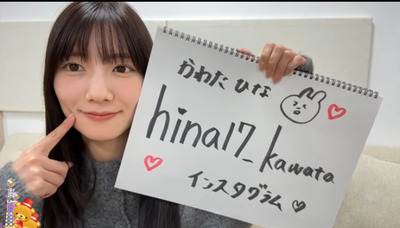 かわた ひな
hina17_kawata
インスタグラム